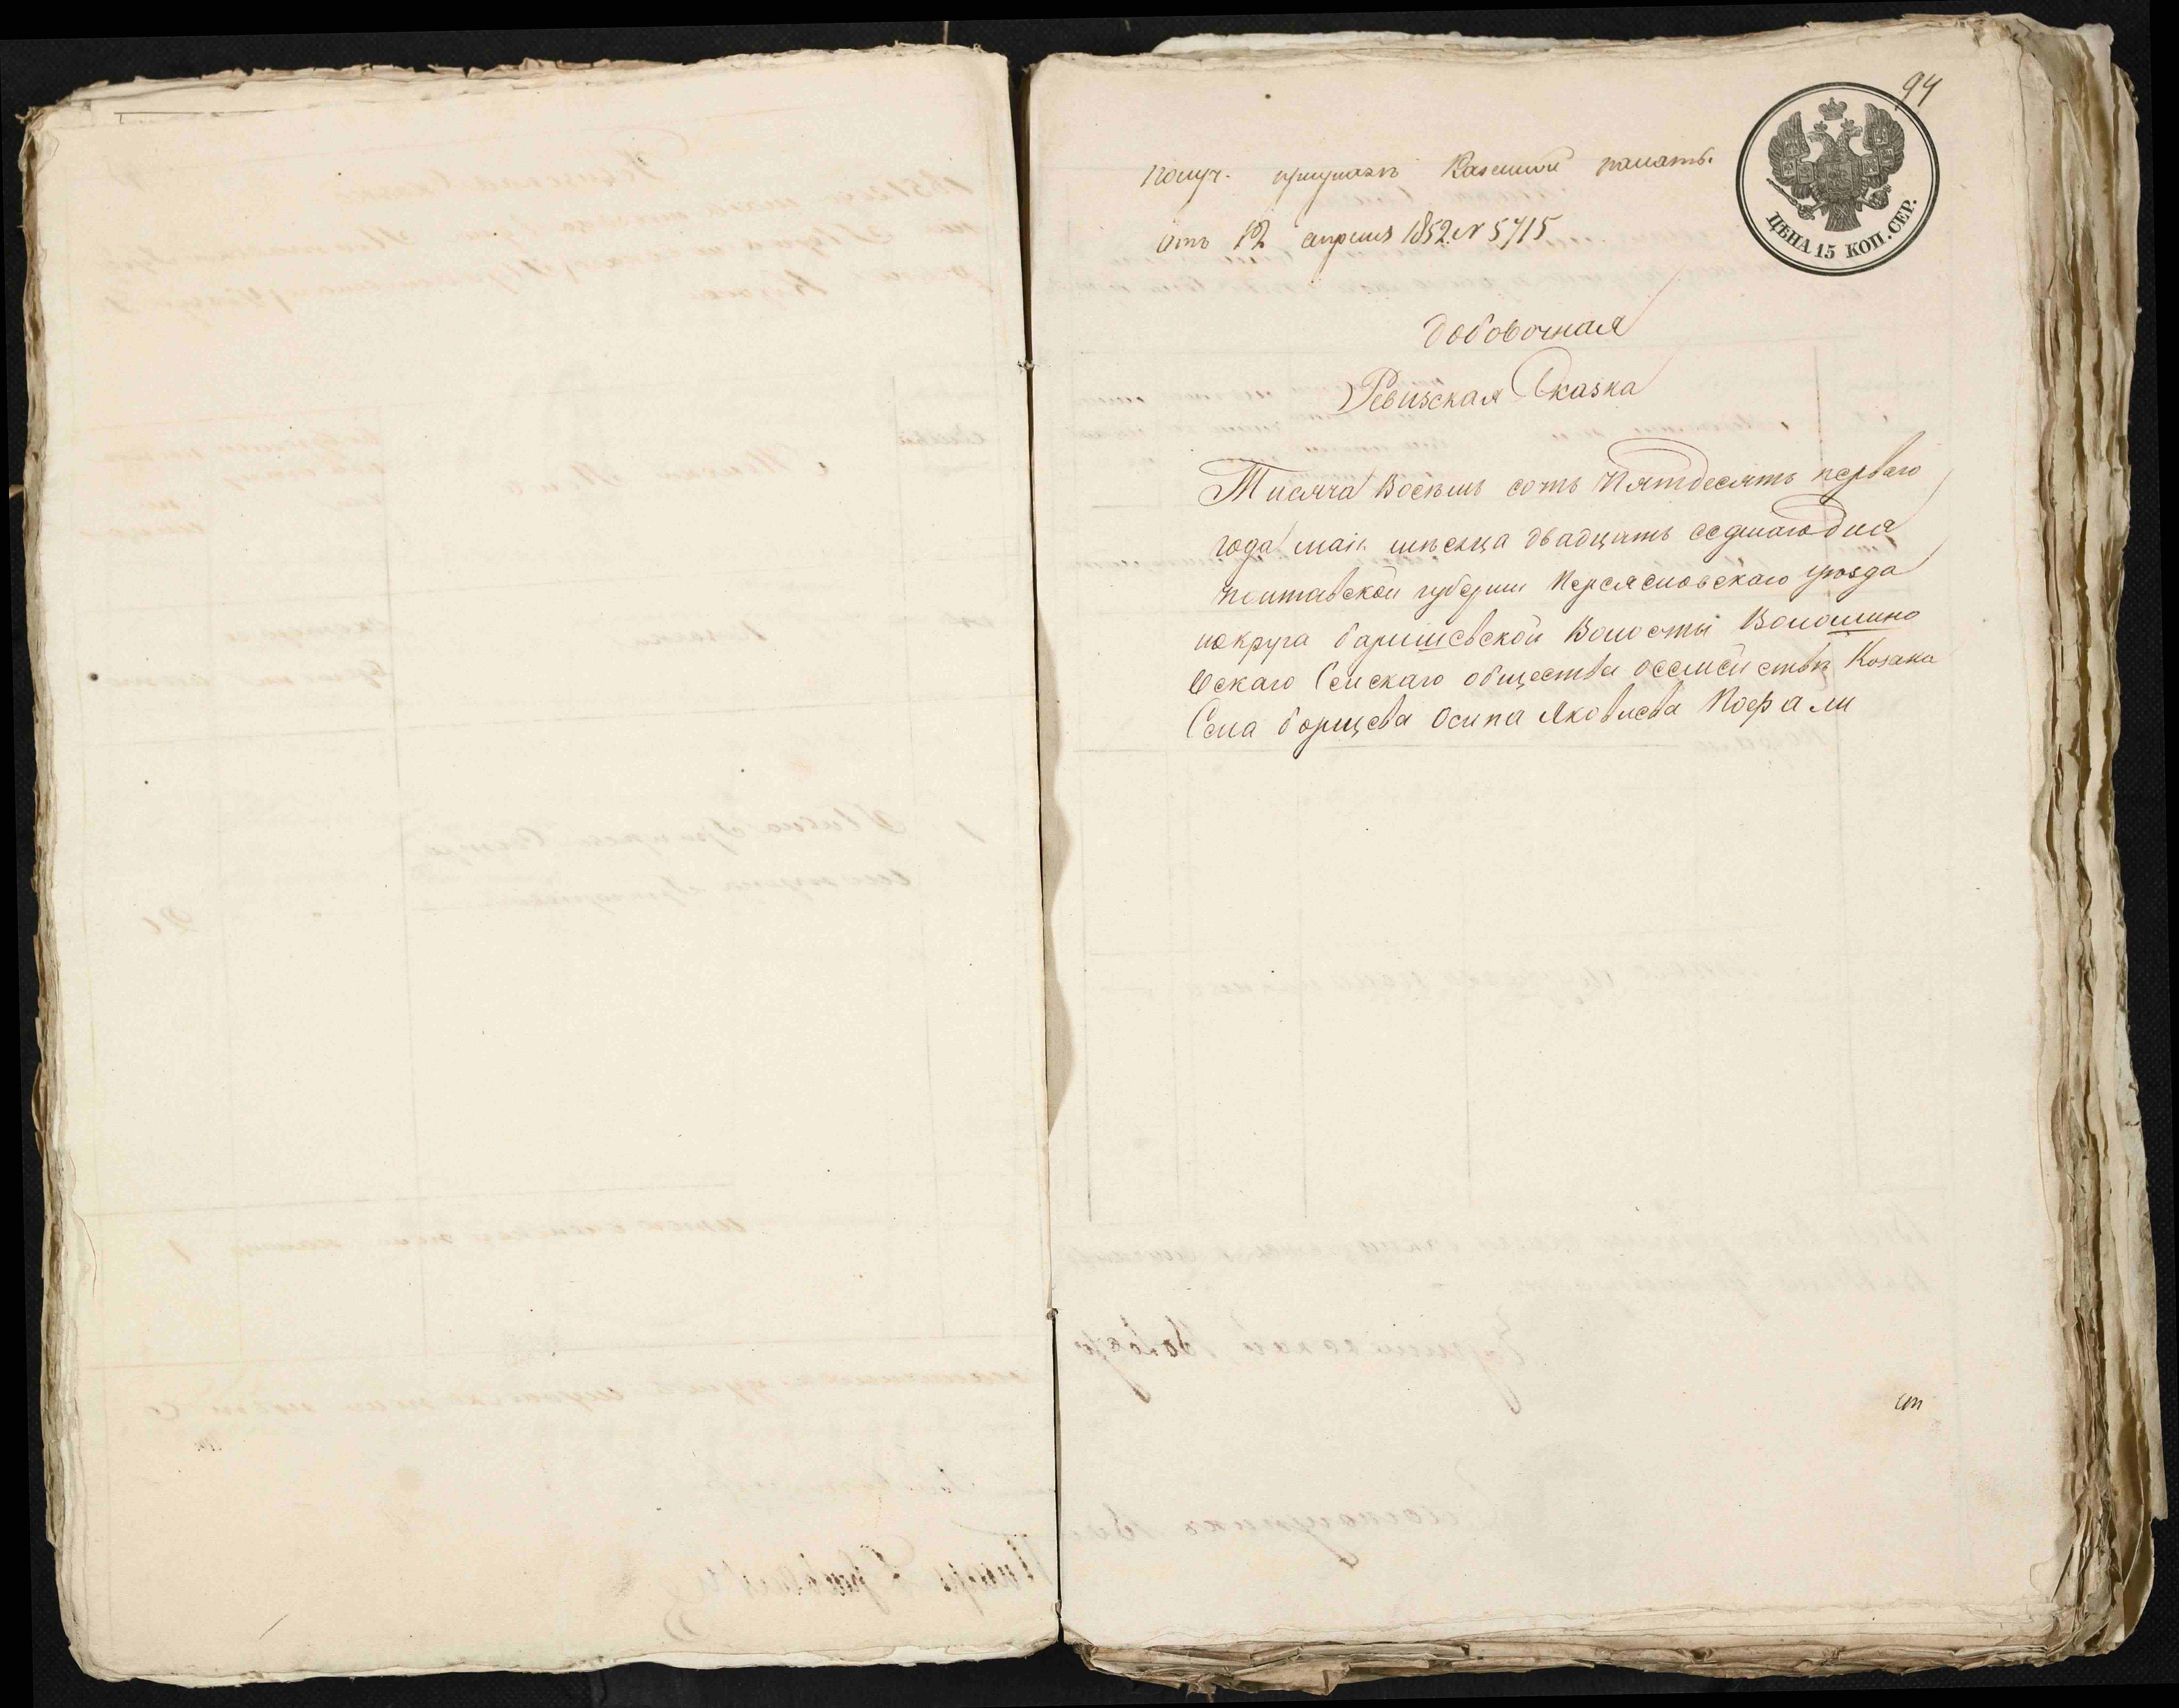 94
ЦѢНА 15 КОП. СЕР.
Получ. при указѣ Казенной палаты
отъ 12 апреля 1852 № 5715
добовочная
Ревизская Сказка
Тисяча Восемь сотъ Пятдесятъ перваго
года маія мѣсяца двадцать седмаго дня
полтавской губерніи Переясловскаго уѣзда
иокруга баришевской Волости Волошино
вскаго Селскаго общества осемействѣ Козака
Села борщева Осипа Яковлева Кофали